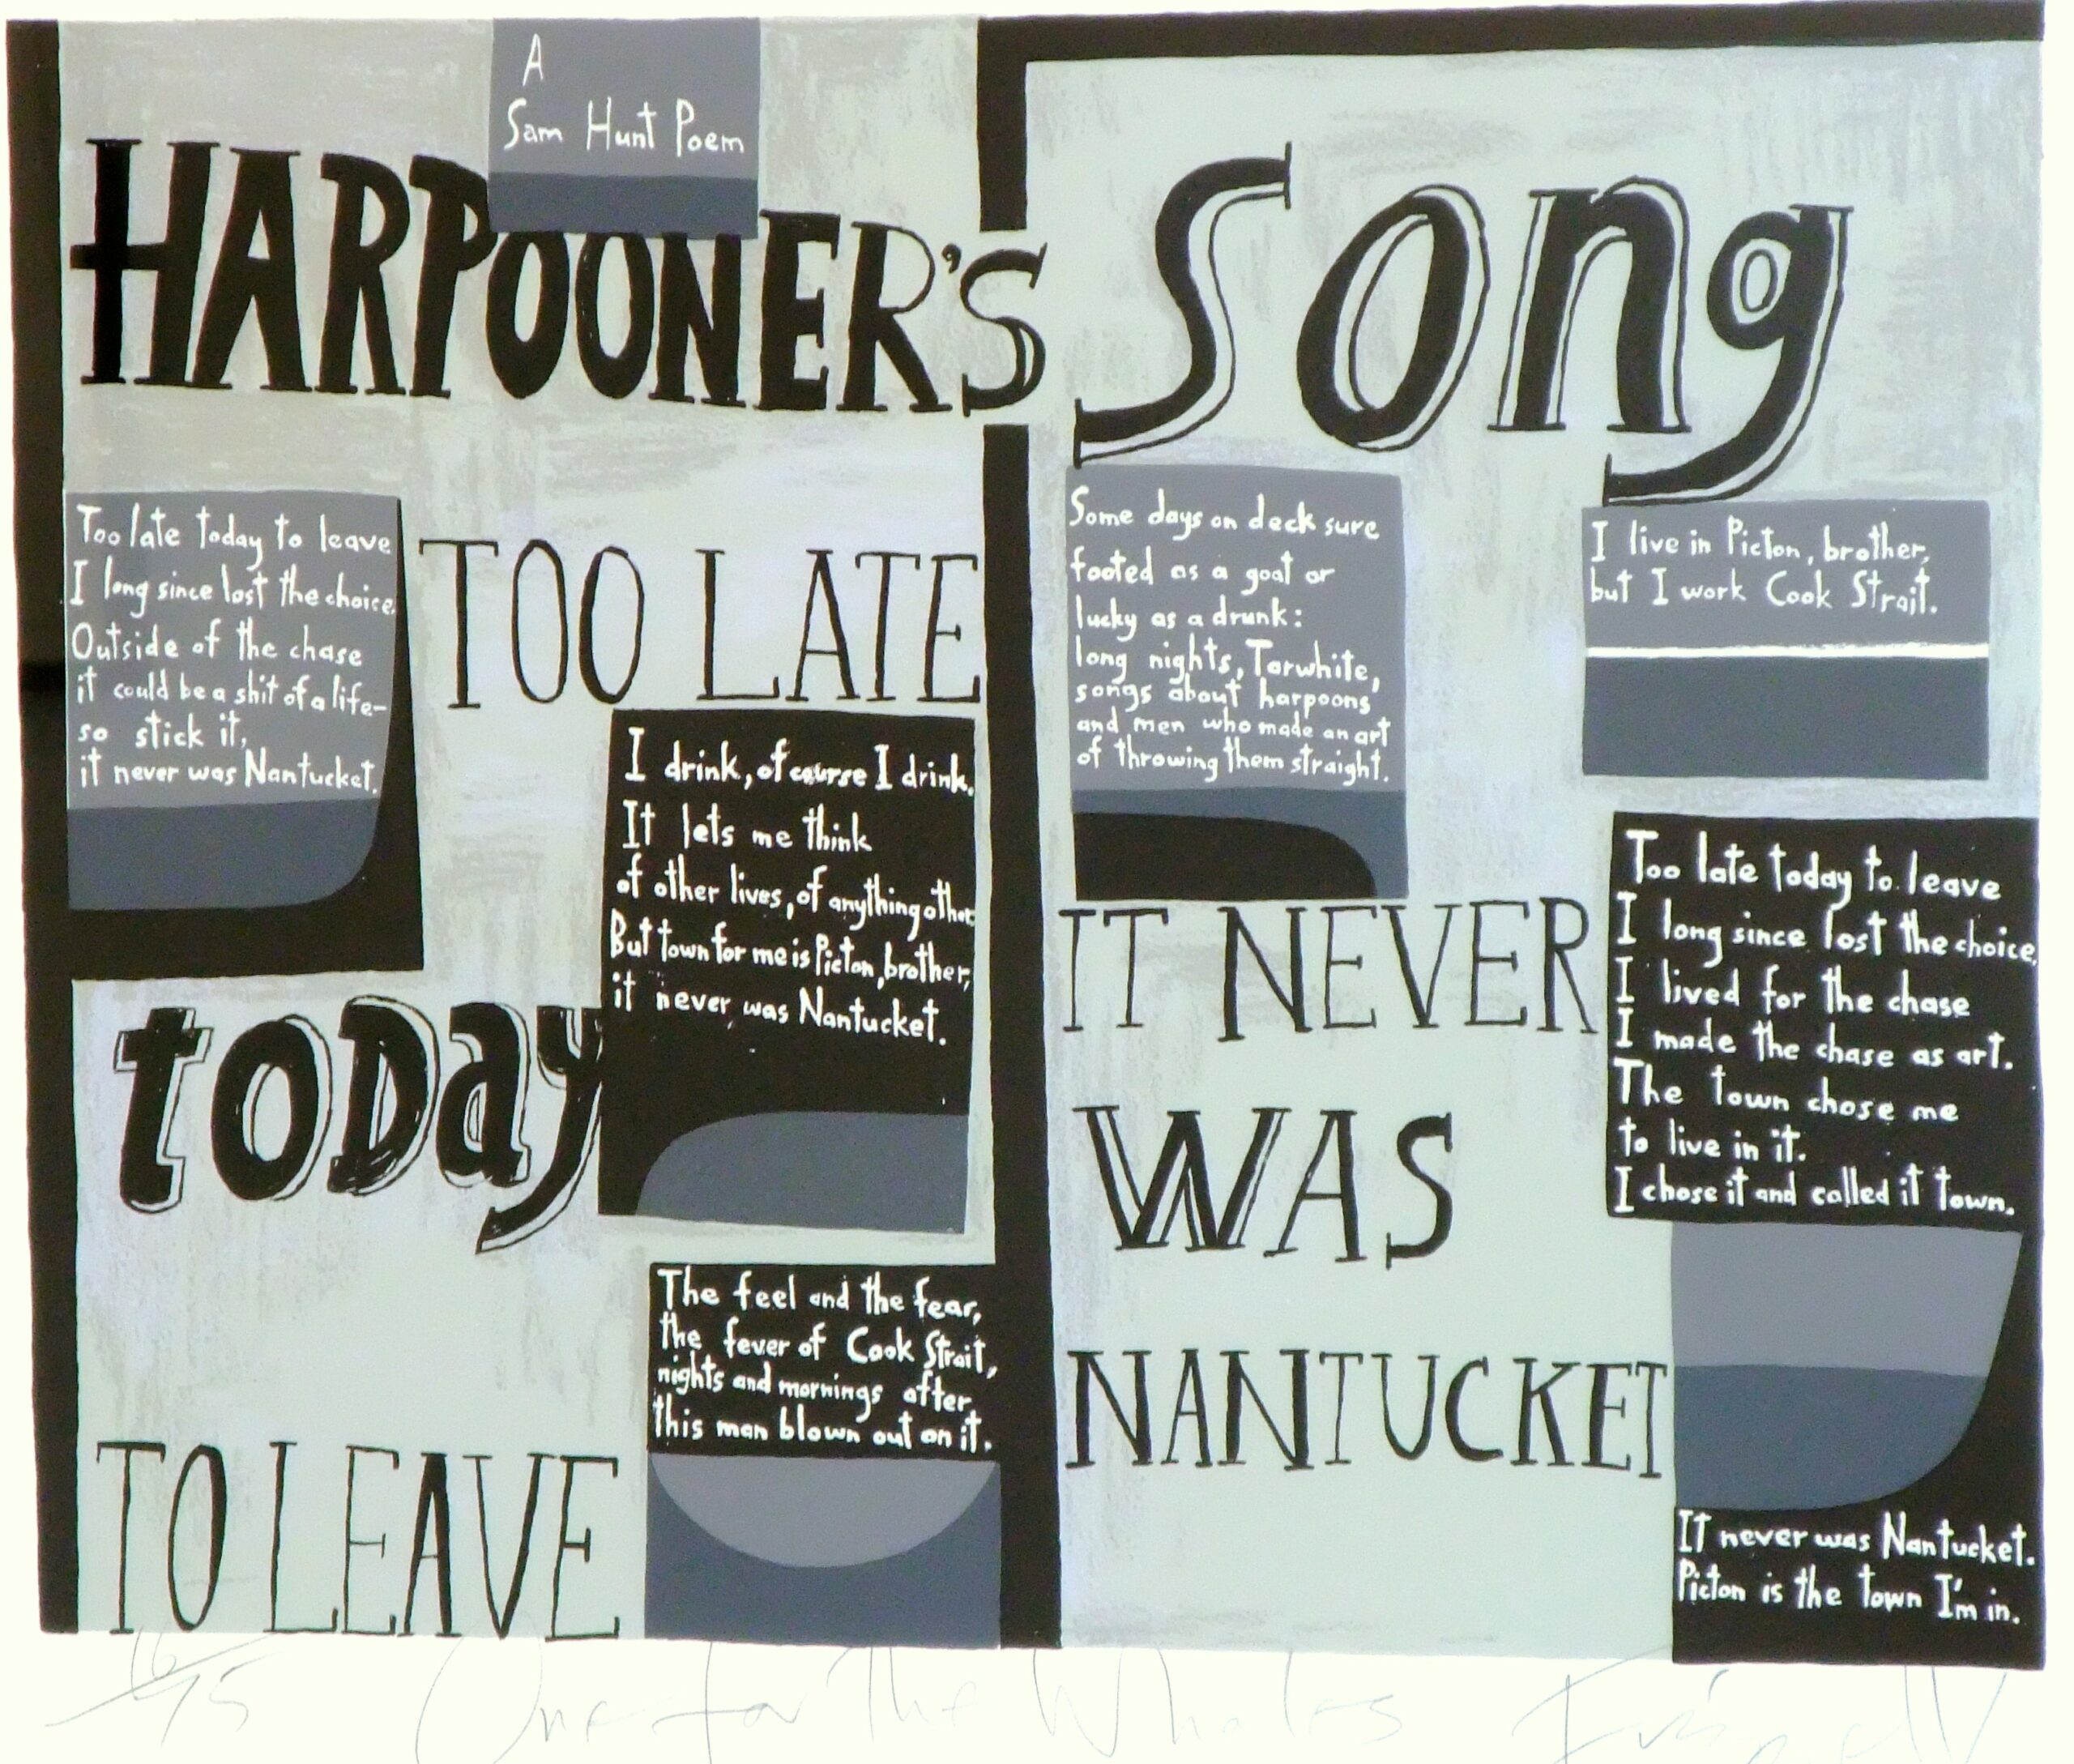 A
Sam Hunt Poem
HARPOONER'S Song
Too late today to leave
I long since lost the choice
Outside of the chase
it could be a shit of a life-
so stick it,
it never was Nantucket.
TOO LATE
I drink, of course I drink.
It lets me think
of other lives, of anything other.
But town for me is Picton, brother,
it never was Nantucket.
toDay
The feel and the fear,
the fever of Cook Strait,
nights and mornings after,
this man blown out on it.
TO LEAVE
Some days on deck sure
footed as a goat or
lucky as a drunk:
long nights, Tarwhite,
songs about harpoons
and men who made an art
of throwing them straight.
I live in Picton, brother,
but I work Cook Strait.
IT NEVER
WAS
NANTUCKET
Too late today to leave
I long since lost the choice,
I lived for the chase
I made the chase as art.
The town chose me
to live in it.
I chose it and called it town.
It never was Nantucket.
Picton is the town I'm in.
One for the Whales